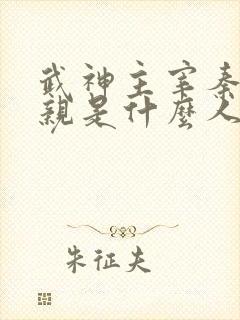 武神主宰秦
親是什麼人
朱征夫